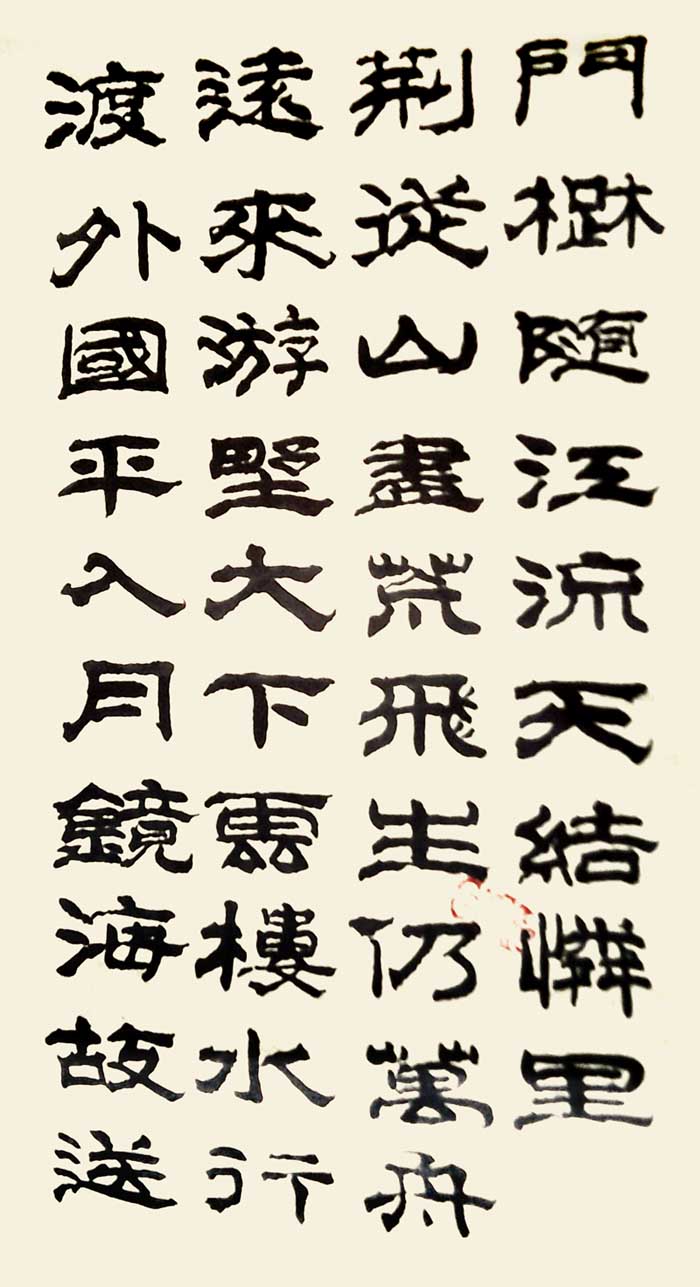 渡遠荊門
外來從楚
國游山隨
平野盡江
入大荒流
月下飛天
鏡雲生結
海樓仍憐
故水萬里
送行舟